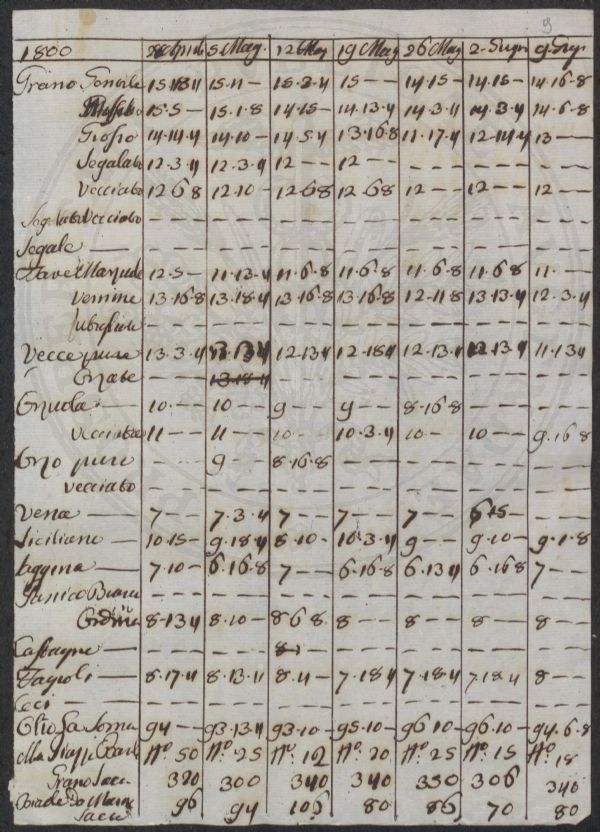 9
1800 28 Aprile 5 Mag 12 Mag 19 Mag 26 Mag 2 Giug 9 Giug
Grano Gentile 15.13.4 15.11 — 15.3.4 15 — — 14.15 — 14.15 — 14.16.8
15.5 — 15.1.8 14.15 — 14.13.4 14.3.4 14.3.4 14.6.8
Grosso 14.14.4 14.10 — 14.5.4 13.16.8 11.17.4 12.14.4 13 — —
Segalato 12.3.4 12.3.4 12 — — 12 — — — — — — — — — — —
Vecciato 12.6.8 12.10 — 12.6.8 12.6.8 12 — — 12 — — 12 — —
Segalato Vecciato — — — — — — — — — — — — — — — — — — — — —
Segale — — — — — — — — — — — — — — — — — — — — — —
Fave 12.5 — 11.13.4 11.6.8 11.6.8 11.6.8 11.6.8 11. —
Vernine 13.16.8 13.18.4 13.16.8 13.16.8 12.11.8 13.13.4 12.3.4
— — — — — — — — — — — — — — — — — — — — —
Vecce pure 13.3.4 13.13.4 12.13.4 12.18.4 12.13.4 12.13.4 11.13.4
Orzate — — — 13.18.4 — — — — — — — — — — — — — — —
Orzola 10 — — 10 — — 9 — — 9 — — 8.16.8 — — — — — —
vecciata 11 — — 11 — — 10 — — 10.3.4 10 — — 10 — — 9.16.8
Orzo puro — — — 9 — — 8.16.8 — — — — — — — — — — — —
vecciato — — — — — — — — — — — — — — — — — — — — —
Vena — 7 — — 7.3.4 7 — — 7 — — 7 — — 6.15 — — — —
Siciliano — 10.15 — 9.18.4 8.10 — 10.3.4 9 — — 9.10 — 9.1.8
Saggina — 7.10 — 6.16.8 7 — — 6.16.8 6.13.4 6.16.8 7 — —
Panico Bianco — — — — — — — — — — — — — — — — — — — — —
8.13.4 8.10 — 8.6.8 8 — — 8 — — 8 — — 8 — —
Castagne — — — — — — — 8 — — — — — — — — — — — — —
Fagioli — 8.17.4 8.13.4 8.11 — 7.18.4 7.18.4 7.18.4 8 — —
Ceci — — — — — — — — — — — — — — — — — — — — — —
Olio La Soma 94 — 93.13.4 93.10 — 95.10 — 96.10 — 96.10 — 94.6.8
No. 50 No. 25 No. 12 No. 20 No. 25 No. 15 No. 18
Grano Sacc 320 300 340 340 330 306 340
Biade 96 94 106 80 86 70 80
Sacca